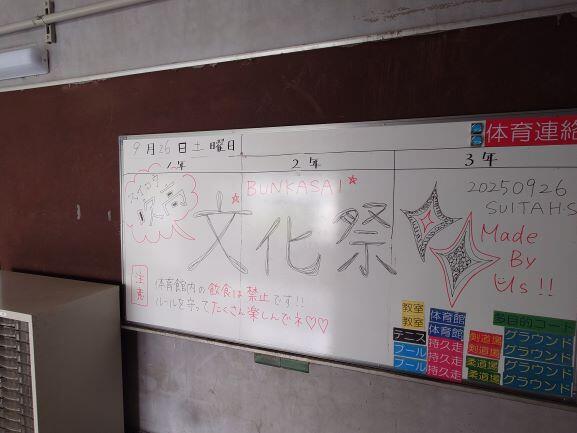 体育連絡
9月26日土曜日
1年 2年 3年
吹高
BUNKASAI
文化祭
20250926
SUITAHS
Made
By
Us!!
注意
体育館内の飲食は禁止です!!
ルールを守ってたくさん楽しんでネ♡♡
教室 体育館 多目的コート
教室 体育館 グラウンド
テニス 持久走 剣道場 グラウンド
プール 持久走 剣道場 グラウンド
プール 持久走 柔道場 グラウンド
柔道場